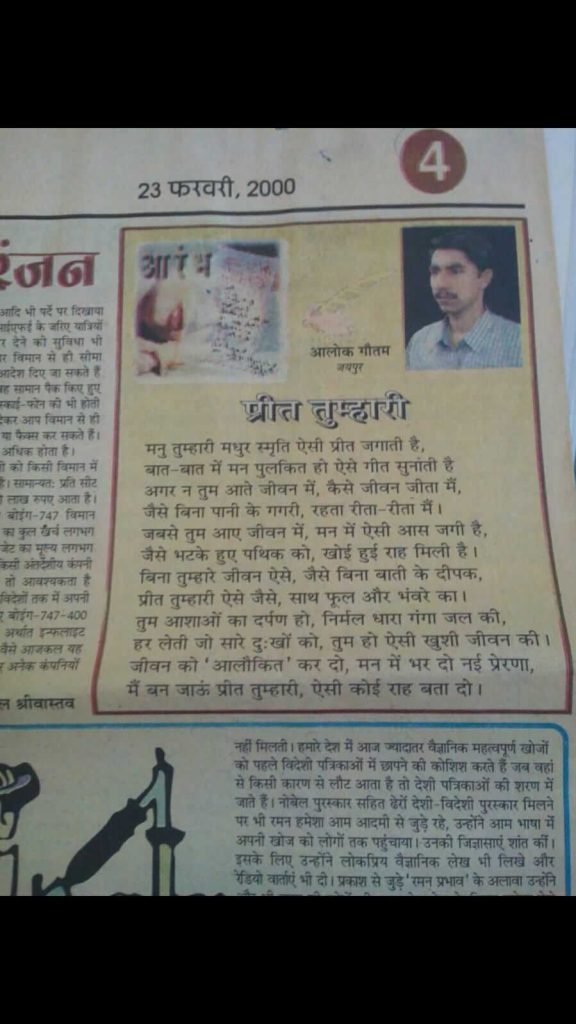 4
23 फरवरी, 2000
रंजन
आदि भी पर्दे पर दिखाया
के जरिए यात्रियों
देने की सुविधा भी
विमान से ही सीमा
आदेश दिए जा सकते हैं
सामान पैक किए हुए
स्काई-फोन की भी होती
आप विमान से ही
या फैक्स कर सकते हैं।
अधिक होता है।
को किसी विमान में
है। सामान्यत: प्रति सीट
लाख रुपए आता है।
बोईंग-747 विमान
का कुल खर्च लगभग
का मूल्य लगभग
किसी अंतर्देशीय कंपनी
तो आवश्यकता है
विदेशों तक में अपनी
बोईंग-747-400
अर्थात इन्फलाइट
वैसे आजकल यह
अनेक कंपनियों
श्रीवास्तव
आरंभ
आलोक गौतम
जयपुर
प्रीत तुम्हारी
मनु तुम्हारी मधुर स्मृति ऐसी प्रीत जगाती है,
बात-बात में मन पुलकित हो ऐसे गीत सुनाती है
अगर न तुम आते जीवन में, कैसे जीवन जीता मैं,
जैसे बिना पानी के गगरी, रहता रीता-रीता मैं।
जबसे तुम आए जीवन में, मन में ऐसी आस जगी है,
जैसे भटके हुए पथिक को, खोई हुई राह मिली है।
बिना तुम्हारे जीवन ऐसे, जैसे बिना बाती के दीपक,
प्रीत तुम्हारी ऐसे जैसे, साथ फूल और भंवरे का।
तुम आशाओं का दर्पण हो, निर्मल धारा गंगा जल की,
हर लेती जो सारे दु:खों को, तुम हो ऐसी खुशी जीवन की।
जीवन को 'आलौकित' कर दो, मन में भर दो नई प्रेरणा,
मैं बन जाऊं प्रीत तुम्हारी, ऐसी कोई राह बता दो।
नहीं मिलती। हमारे देश में आज ज्यादातर वैज्ञानिक महत्वपूर्ण खोजों
को पहले विदेशी पत्रिकाओं में छापने की कोशिश करते हैं जब वहां
से किसी कारण से लौट आता है तो देशी पत्रिकाओं की शरण में
जाते हैं। नोबेल पुरस्कार सहित ढेरों देशी-विदेशी पुरस्कार मिलने
पर भी रमन हमेशा आम आदमी से जुड़े रहे, उन्होंने आम भाषा में
अपनी खोज को लोगों तक पहुंचाया। उनकी जिज्ञासाएं शांत कीं।
इसके लिए उन्होंने लोकप्रिय वैज्ञानिक लेख भी लिखे और
रेडियो वार्ताएं भी दी। प्रकाश से जुड़े 'रमन प्रभाव' के अलावा उन्होंने